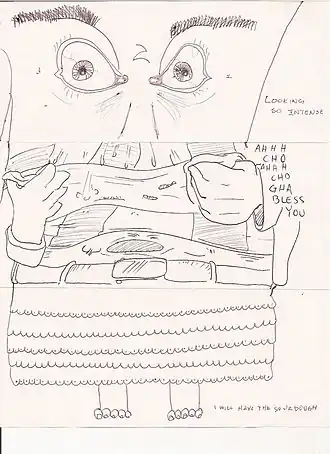 LOOKING
SO INTENSE
AHHH
CHO
AHHH
CHO
GHA
BLESS
YOU
I WILL HAVE THE SOURDOUGH